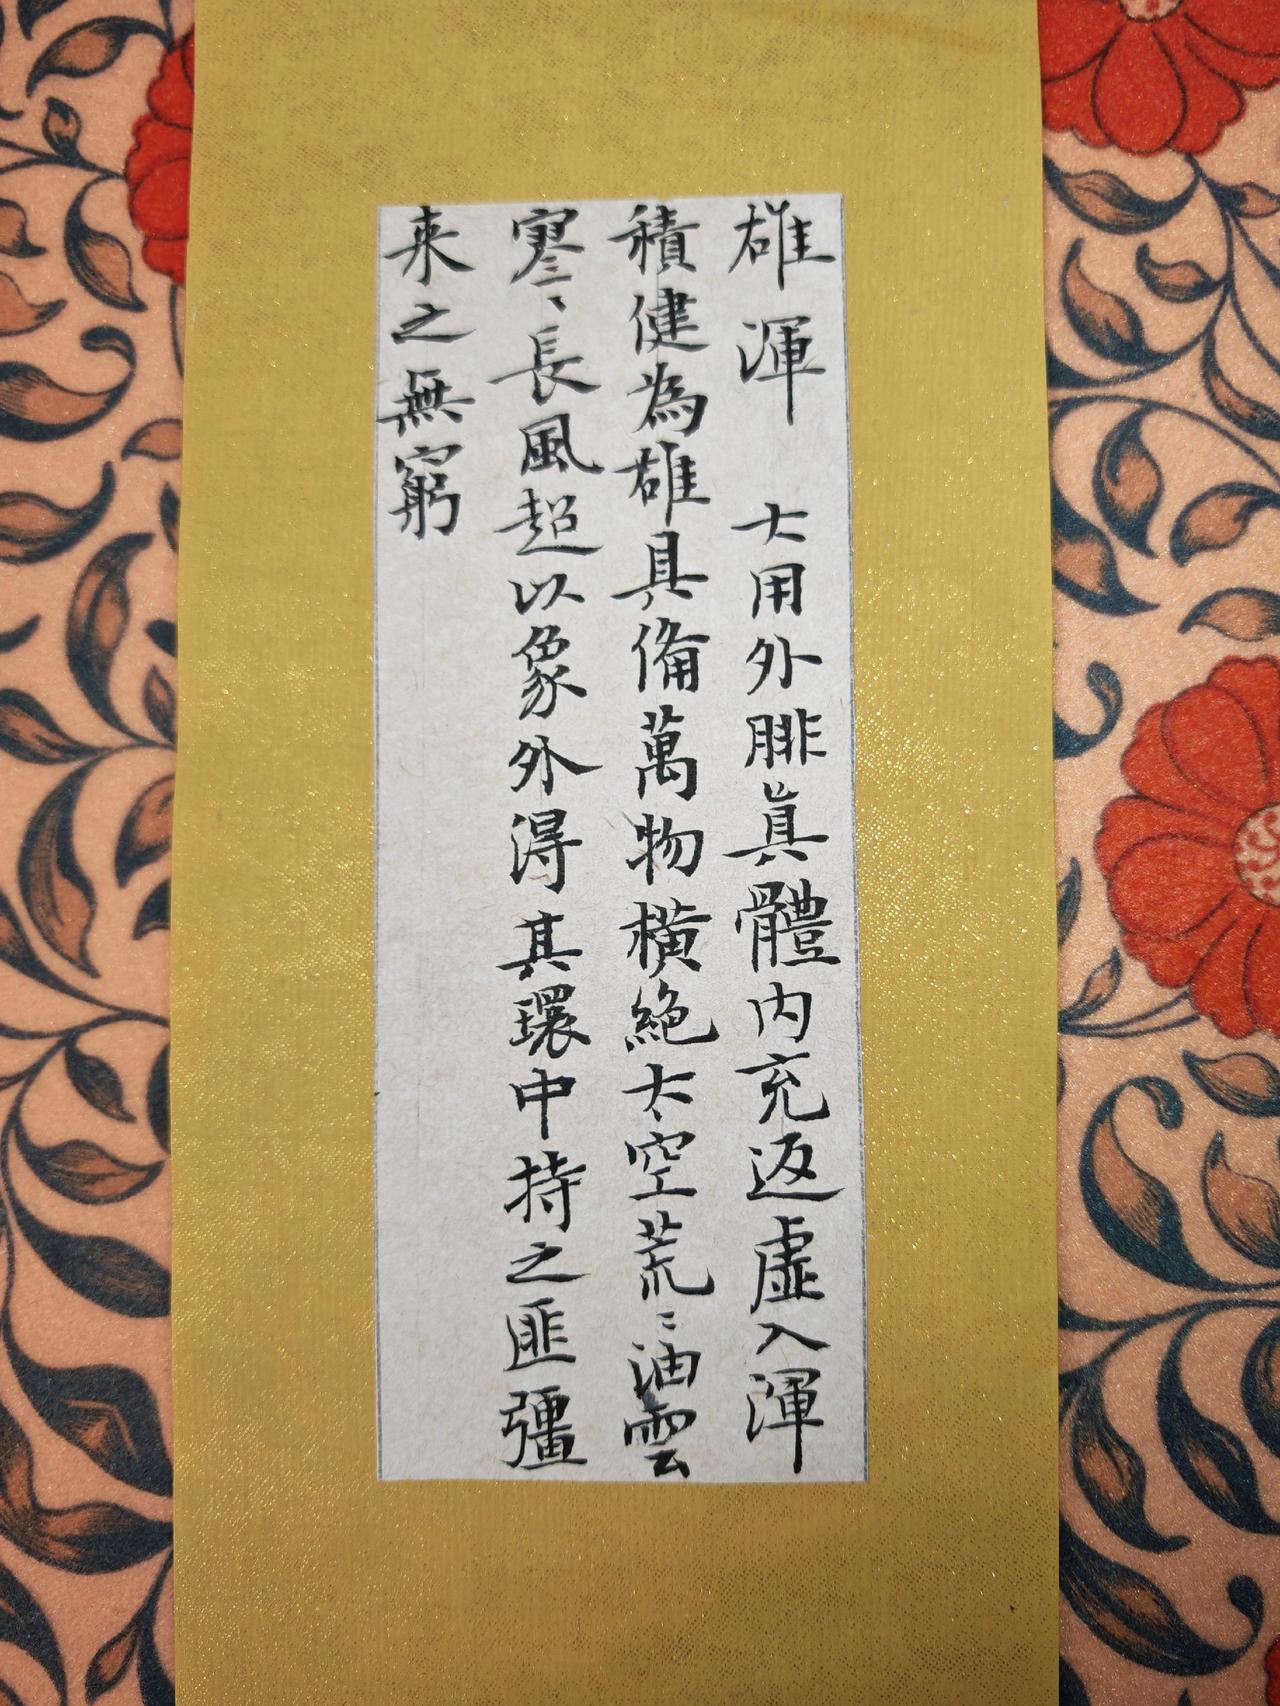 雄渾 大用外腓真體内充返虛入渾
積健為雄具備萬物橫絕太空荒〻油雲
寥〻長風超以象外得其環中持之匪彊
来之無窮